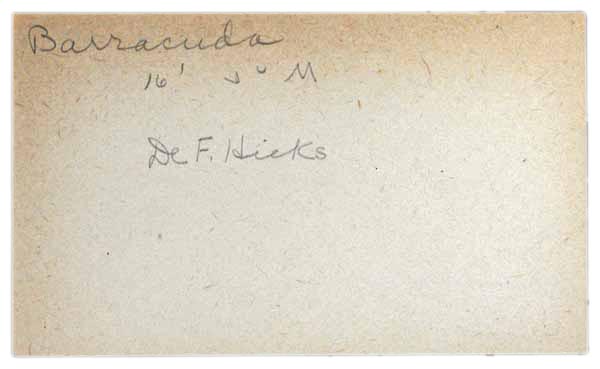 Barracuda
16' J" M
De F. Hicks